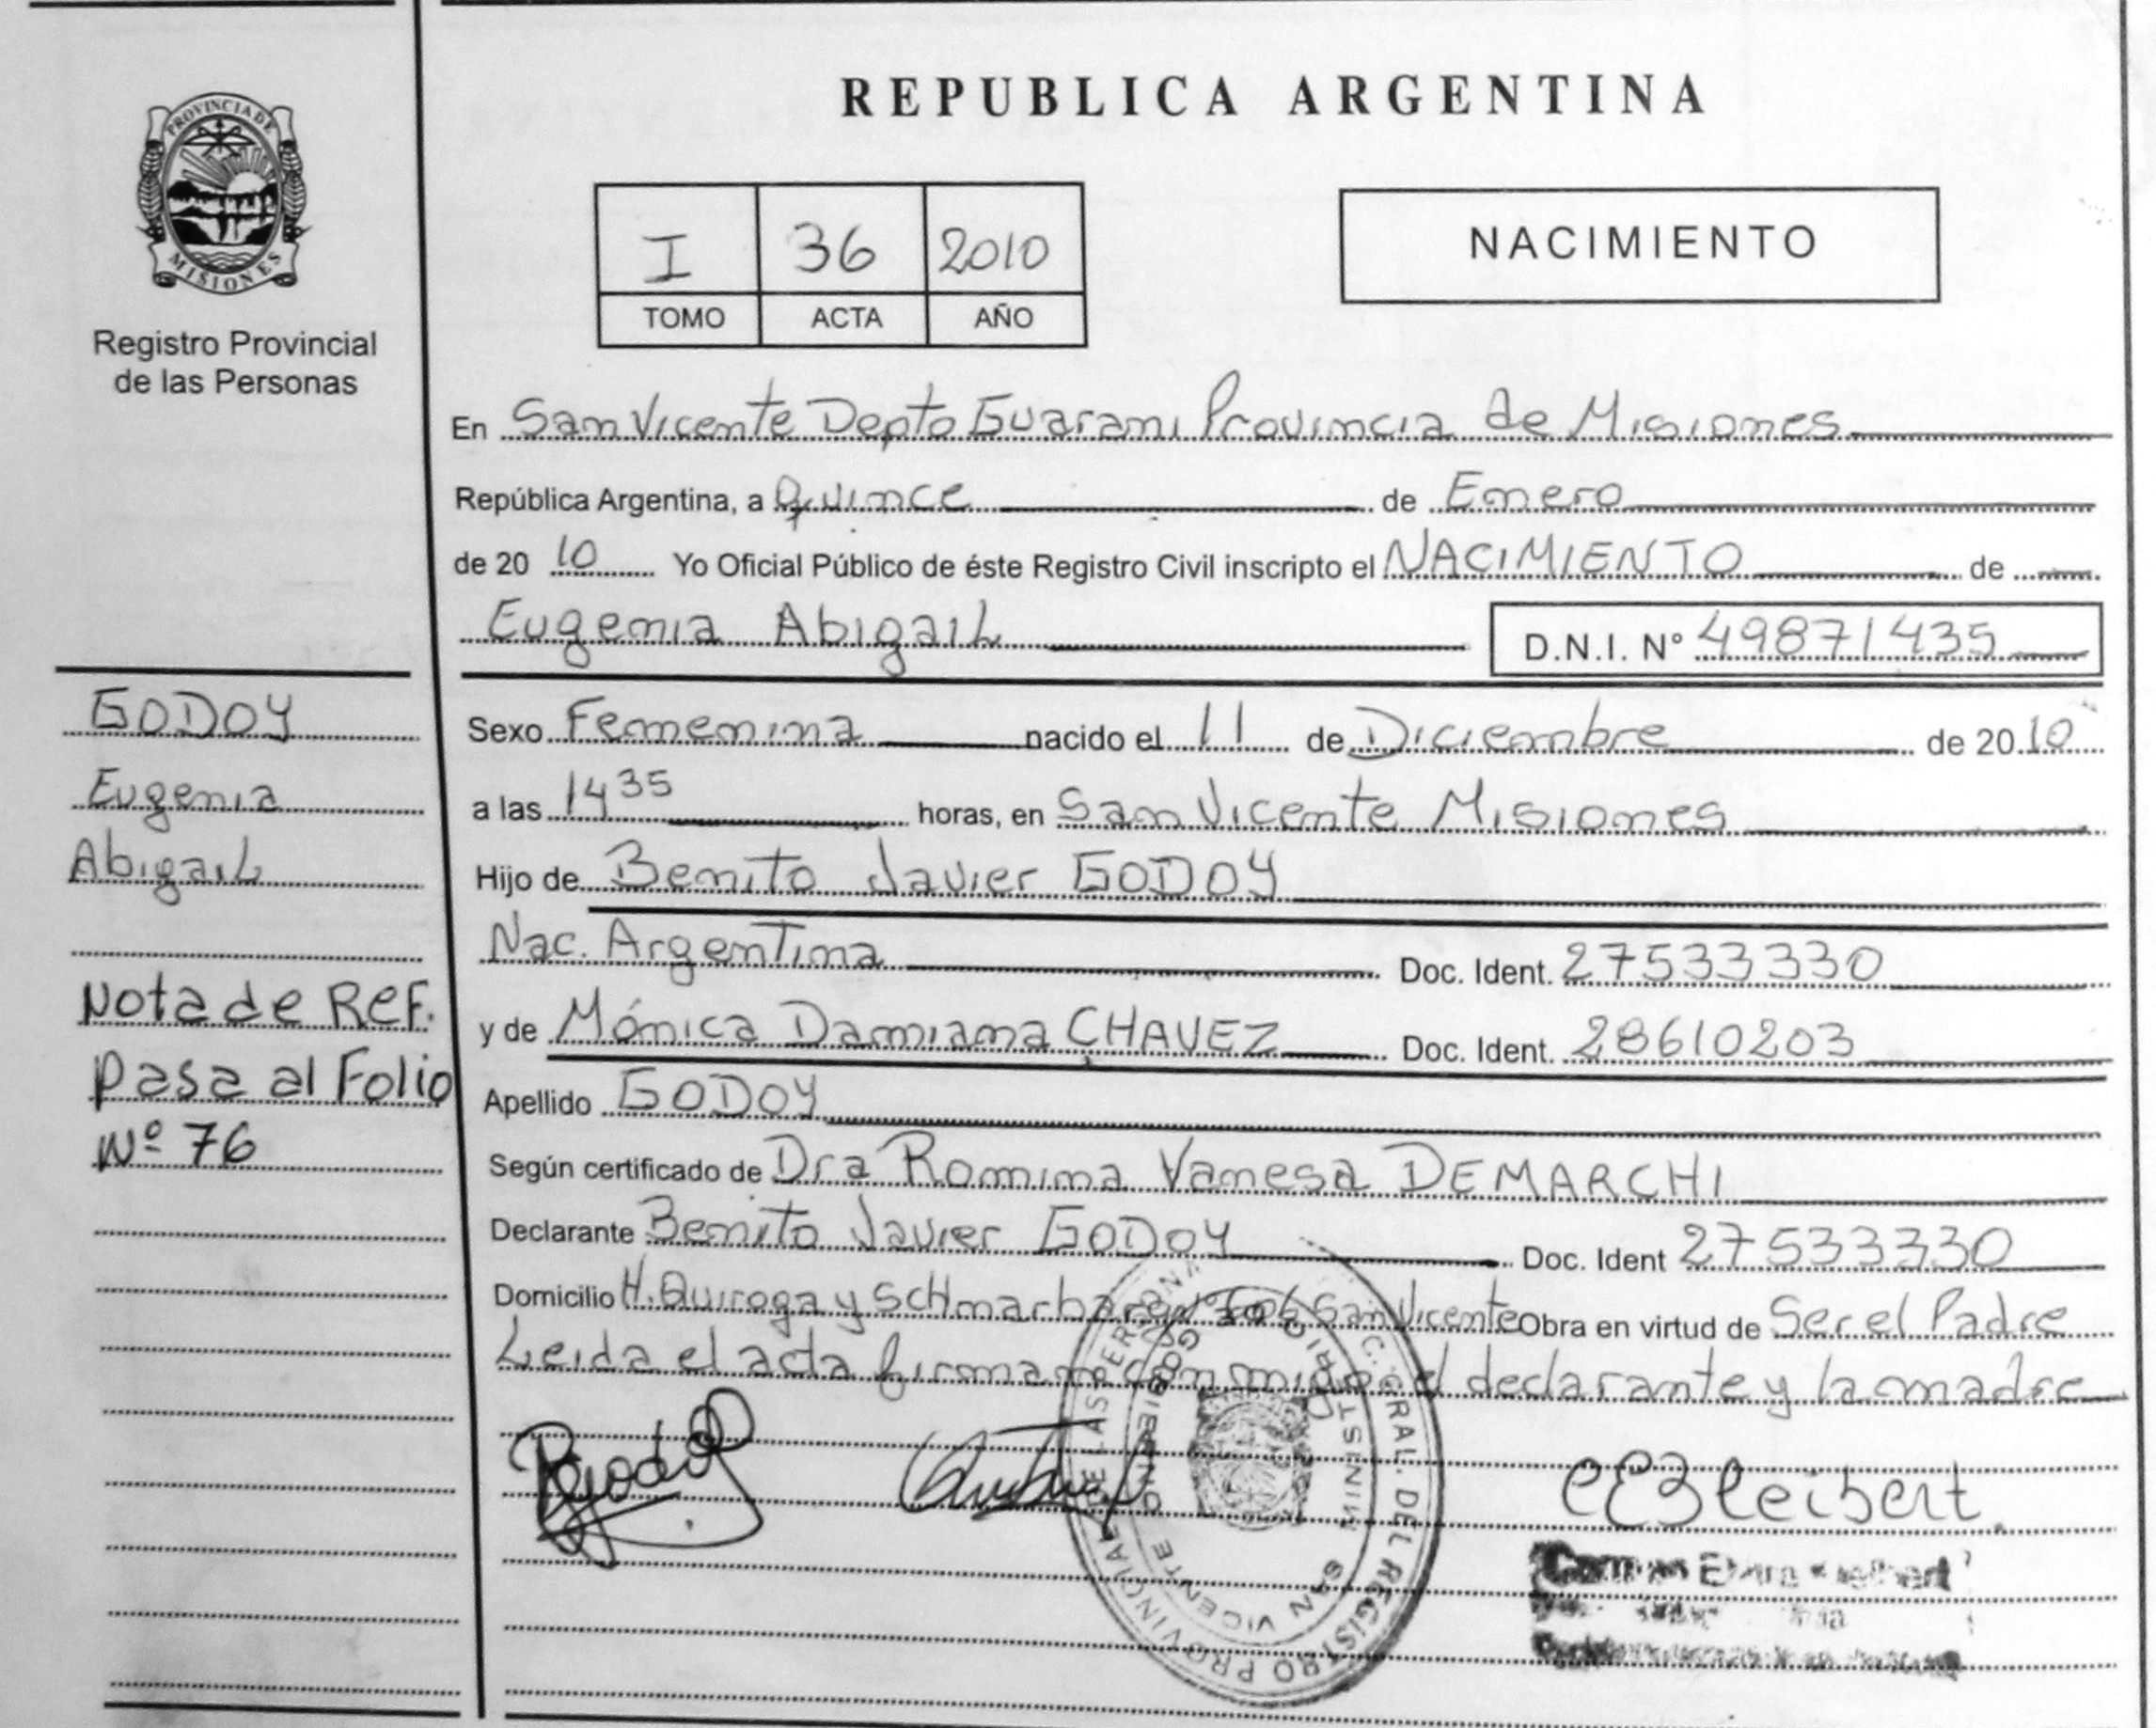 PROVINCIA DE
MISIONES
Registro Provincial
de las Personas
GODOY
Eugenia
Abigail
Nota de REF.
Pasa al Folio
Nº 76
REPUBLICA ARGENTINA
I 36 2010
TOMO ACTA AÑO
NACIMIENTO
En San Vicente Depto Guarani Provincia de Misiones
República Argentina, a Quince de Enero
de 20 10 Yo Oficial Público de éste Registro Civil inscripto el NACIMIENTO de
Eugenia Abigail D.N.I. Nº 49871435
Sexo Femenina nacido el 11 de Diciembre de 20 10
a las 14 35 horas, en San Vicente Misiones
Hijo de Benito Javier GODOY
Nac. Argentina Doc. Ident. 27533330
y de Mónica Damiana CHAVEZ Doc. Ident. 28610203
Apellido GODOY
Según certificado de Dra Romina Vanesa DEMARCHI
Declarante Benito Javier GODOY Doc. Ident 27533330
Domicilio H. Quiroga y San Vicente Obra en virtud de Ser el Padre
Leida el acta firman conmigo el declarante y la madre
DEL REGISTRO PROVINCIAL DE LAS PERSONAS
SAN VICENTE